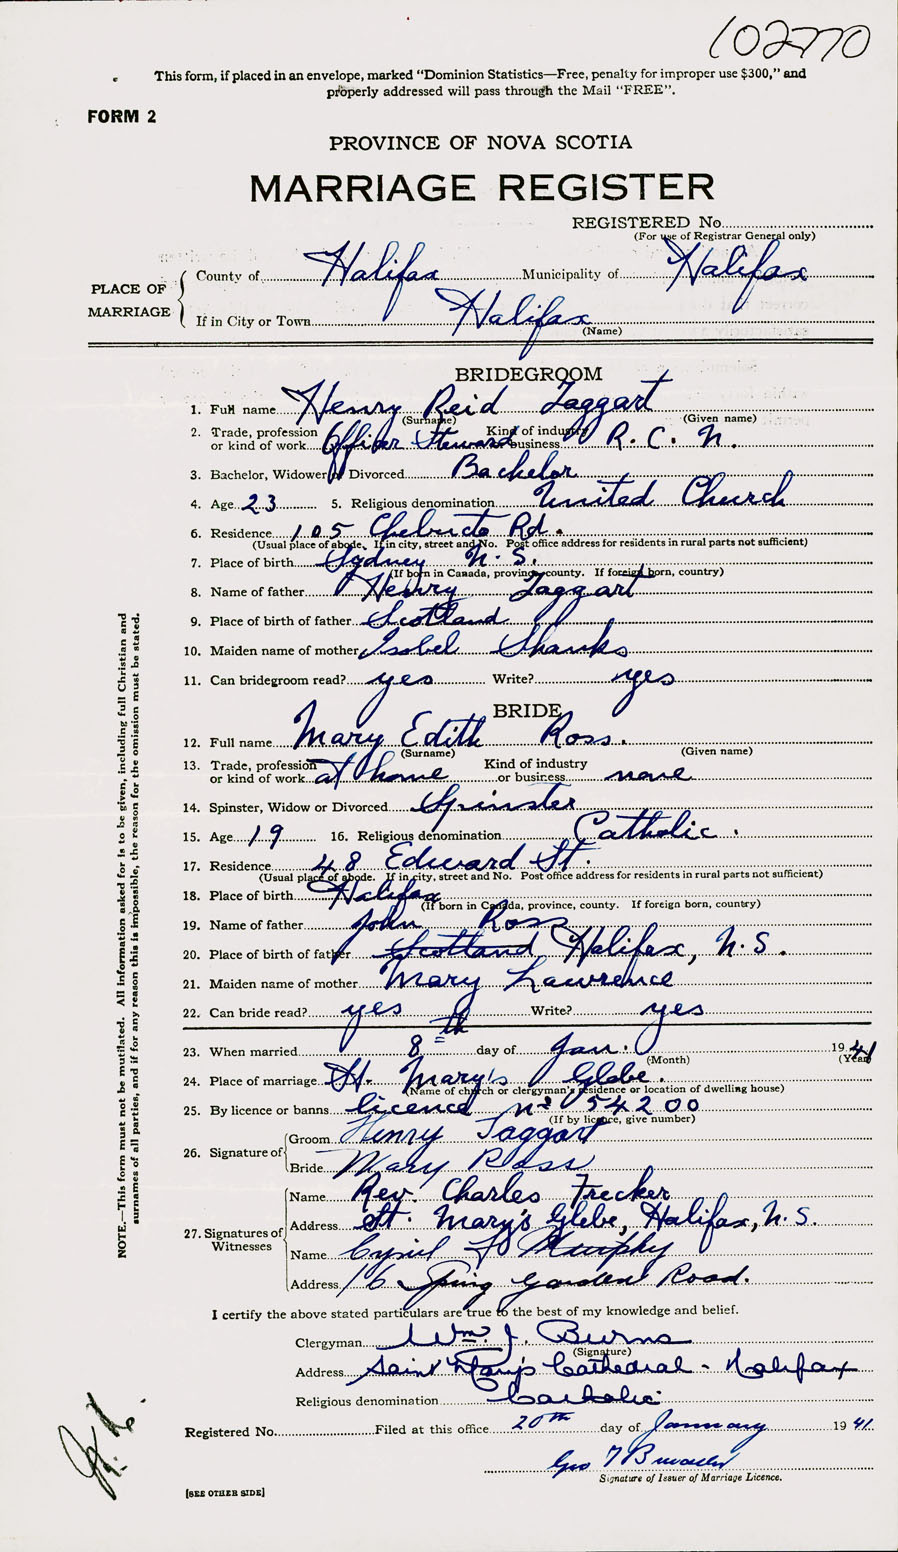 102770
This form, if placed in an envelope, marked "Dominion Statistics—Free, penalty for improper use $300," and
properly addressed will pass through the Mail "FREE".
FORM 2
PROVINCE OF NOVA SCOTIA
MARRIAGE REGISTER
REGISTERED No.
(For use of Registrar General only)
PLACE OF MARRIAGE
County of Halifax Municipality of Halifax
If in City or Town Halifax
(Name)
BRIDEGROOM
1. Full name Henry Reid Taggart
(Surname) (Given name)
2. Trade, profession or kind of work Officer Steward Kind of industry or business R. C. N.
3. Bachelor, Widower or Divorced Bachelor
4. Age 23 5. Religious denomination United Church
6. Residence 105 Chebucto Rd.
(Usual place of abode. If in city, street and No. Post office address for residents in rural parts not sufficient)
7. Place of birth Sydney N. S.
(If born in Canada, province, county. If foreign born, country)
8. Name of father Henry Taggart
9. Place of birth of father Scotland
10. Maiden name of mother Isobel Shanks
11. Can bridegroom read? yes Write? yes
BRIDE
12. Full name Mary Edith Ross.
(Surname) (Given name)
13. Trade, profession or kind of work at home Kind of industry or business none
14. Spinster, Widow or Divorced Spinster
15. Age 19 16. Religious denomination Catholic.
17. Residence 48 Edward St.
(Usual place of abode. If in city, street and No. Post office address for residents in rural parts not sufficient)
18. Place of birth Halifax
(If born in Canada, province, county. If foreign born, country)
19. Name of father John Ross
20. Place of birth of father Scotland Halifax, N.S.
21. Maiden name of mother Mary Lawrence
22. Can bride read? yes Write? yes
23. When married 8th day of Jan. 1941
(Month) (Year)
24. Place of marriage St. Mary's Glebe.
(Name of church or clergyman's residence or location of dwelling house)
25. By licence or banns licence no 54200
(If by licence, give number)
26. Signature of
Groom Henry Taggart
Bride Mary Ross
27. Signatures of Witnesses
Name Rev. Charles Frecker
Address St. Mary's Glebe, Halifax, N.S.
Name Cyril F Murphy
Address 16 Spring Garden Road.
I certify the above stated particulars are true to the best of my knowledge and belief.
Clergyman Wm. J. Burns
(Signature)
Address Saint Mary's Cathedral - Halifax
Religious denomination Catholic
Registered No. Filed at this office 20th day of January 1941.
Geo
Signature of Issuer of Marriage Licence.
[SEE OTHER SIDE]
NOTE.—This form must not be mutilated. All information asked for is to be given, including full Christian and
surnames of all parties, and if for any reason this is impossible, the reason for the omission must be stated.